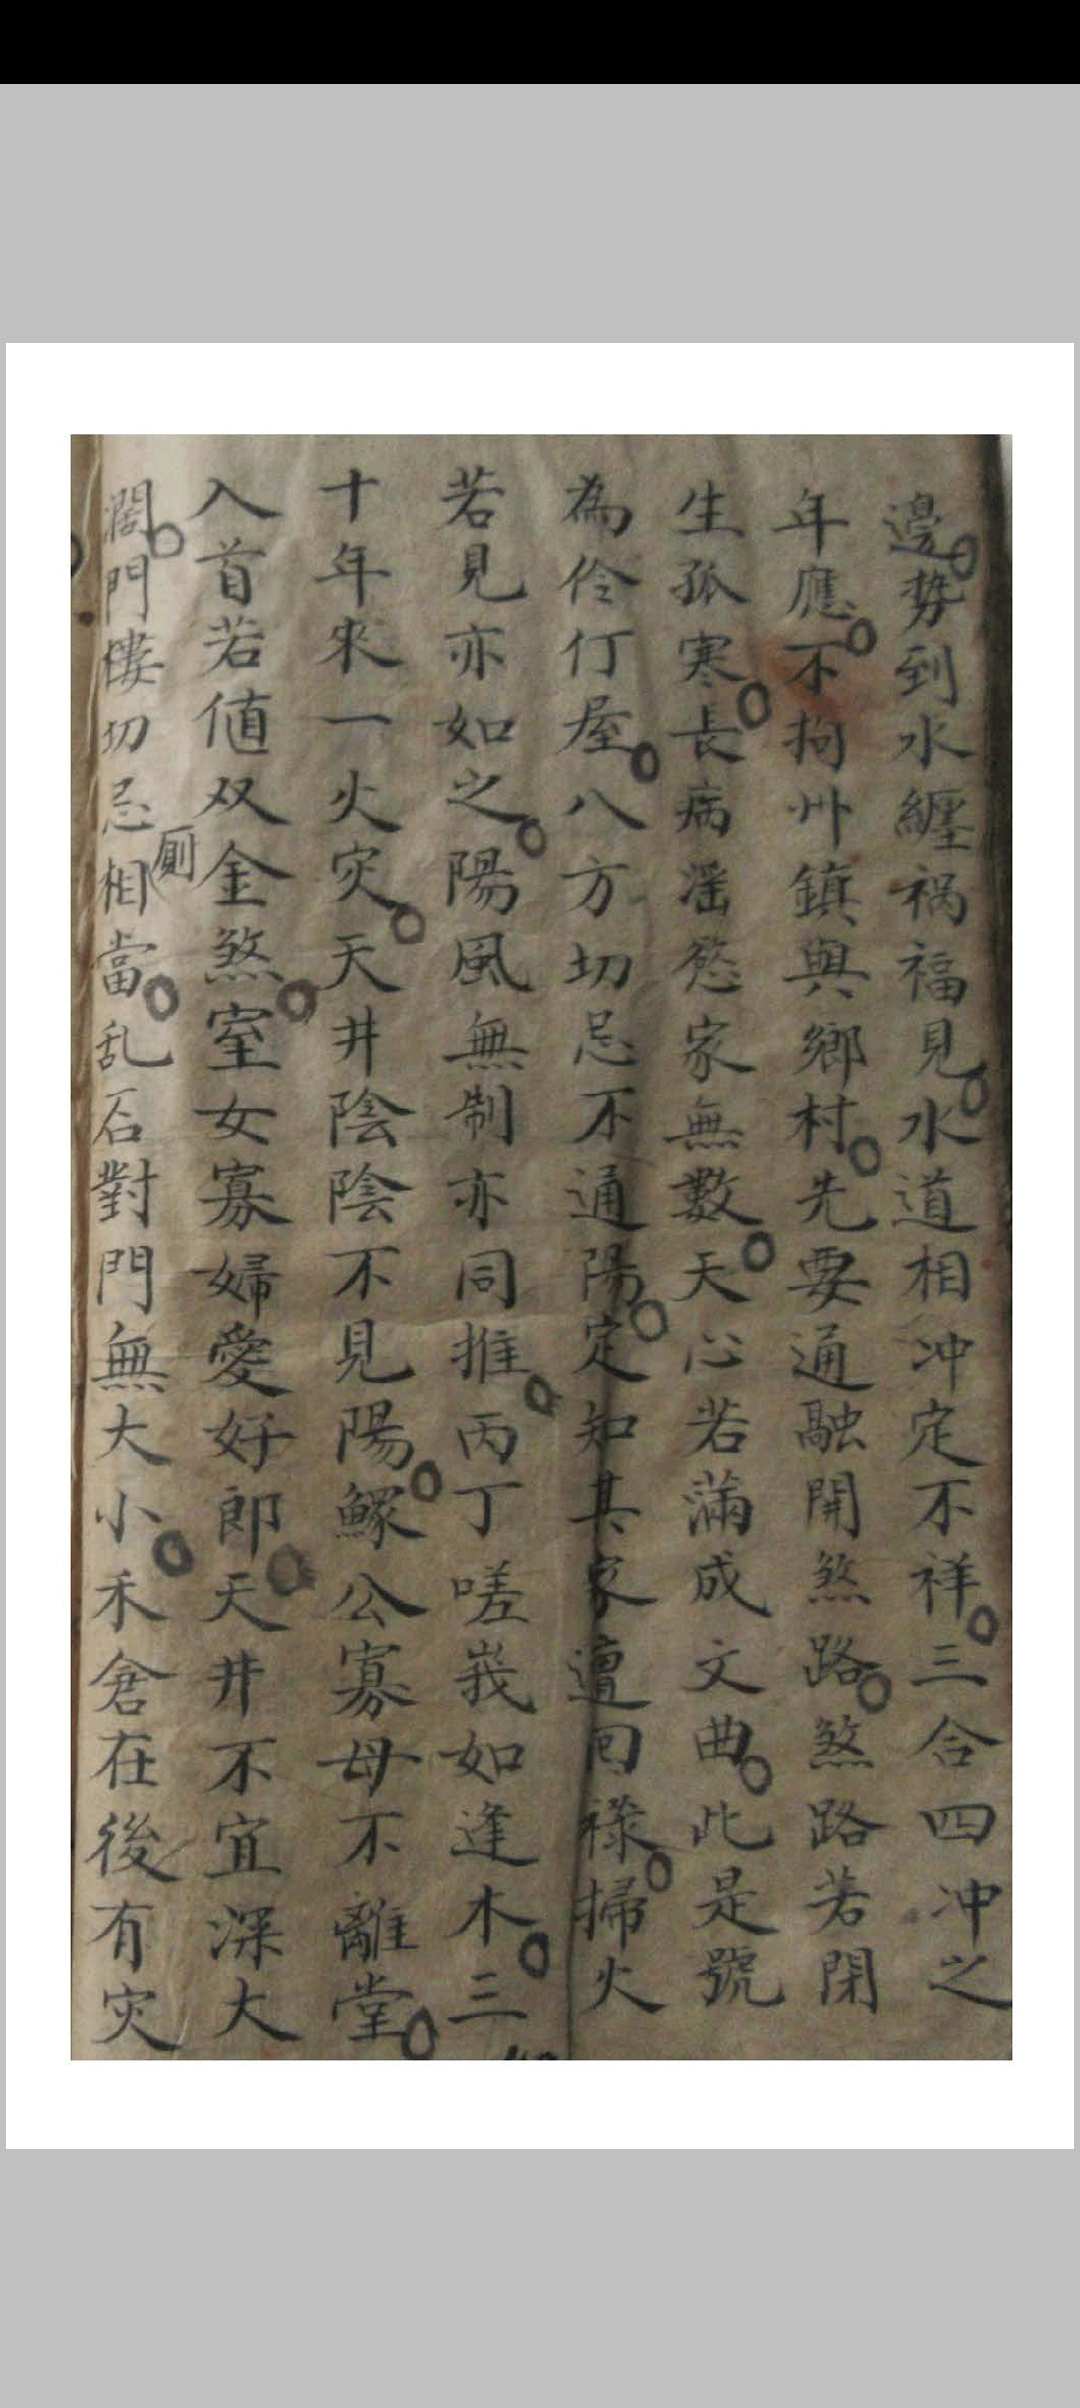 邊势到水纏祸福見水道相冲定不祥三合四冲之
年應不拘卅鎮與鄉村先要通融開煞路煞路若閉
生孤寒長病滛慾家無數天心若滿成文曲此是號
為伶仃屋八方切忌不通陽定知其家遭回禄掃火
若見亦如之陽風無制亦同推丙丁嗟峩如逢木三
十年來一火灾天井陰陰不見陽鰥公寡母不離堂
入首若値双金煞室女寡婦愛好郎天井不宜深大
濶門樓切忌相廁當乱石對門無大小禾倉在後有灾